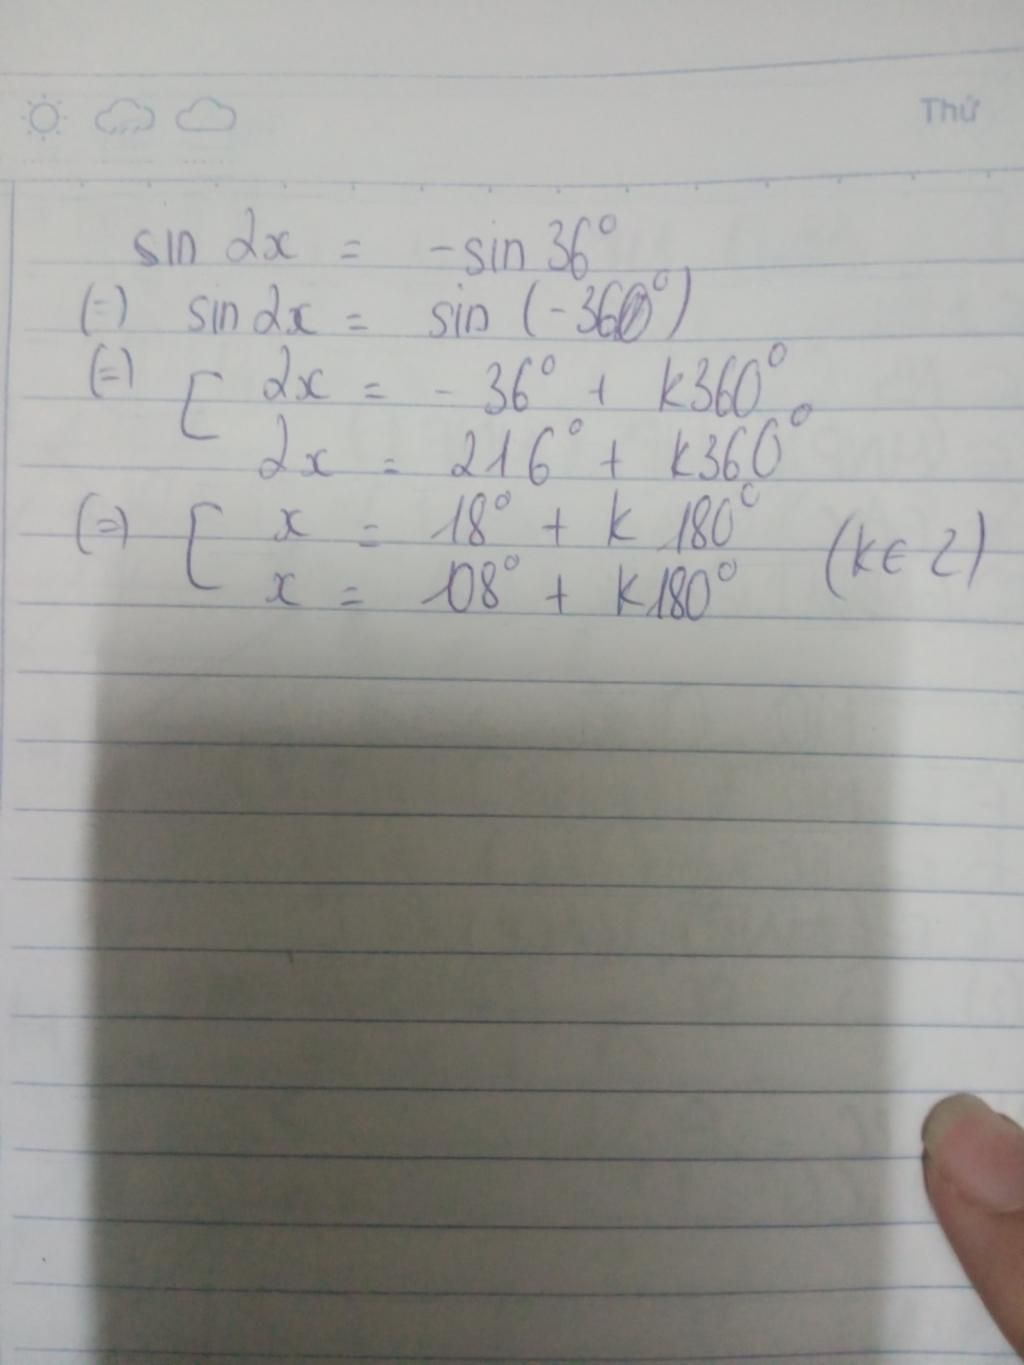 Thứ
sin 2x = -sin 36°
(=) sin 2x = sin (-36°)
(=) [ 2x = - 36° + k360°
2x = 216° + k360°
(=) [ x = 18° + k 180°
x = 108° + k180° (k ∈ Z)